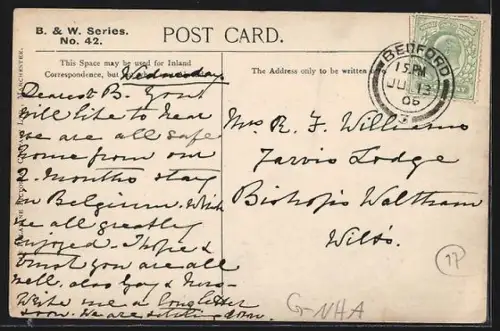 B. & W. Series.
No. 42.
POST CARD.
This Space may be used for Inland
Correspondence, but
The Address only to be written
Wednesday
Dearest B. You
will like to hear
we are all safe
home from our
2 months stay
in Belgium. Which
we all greatly
enjoyed. I hope &
trust you are all
well, also
Write me a long letter
soon. We are settling down.
BEDFORD
15 PM
JU 13
06
3
Mrs R. F. Williams
Jarvis Lodge
Bishop's Waltham
Wilts.
17
G-NHA